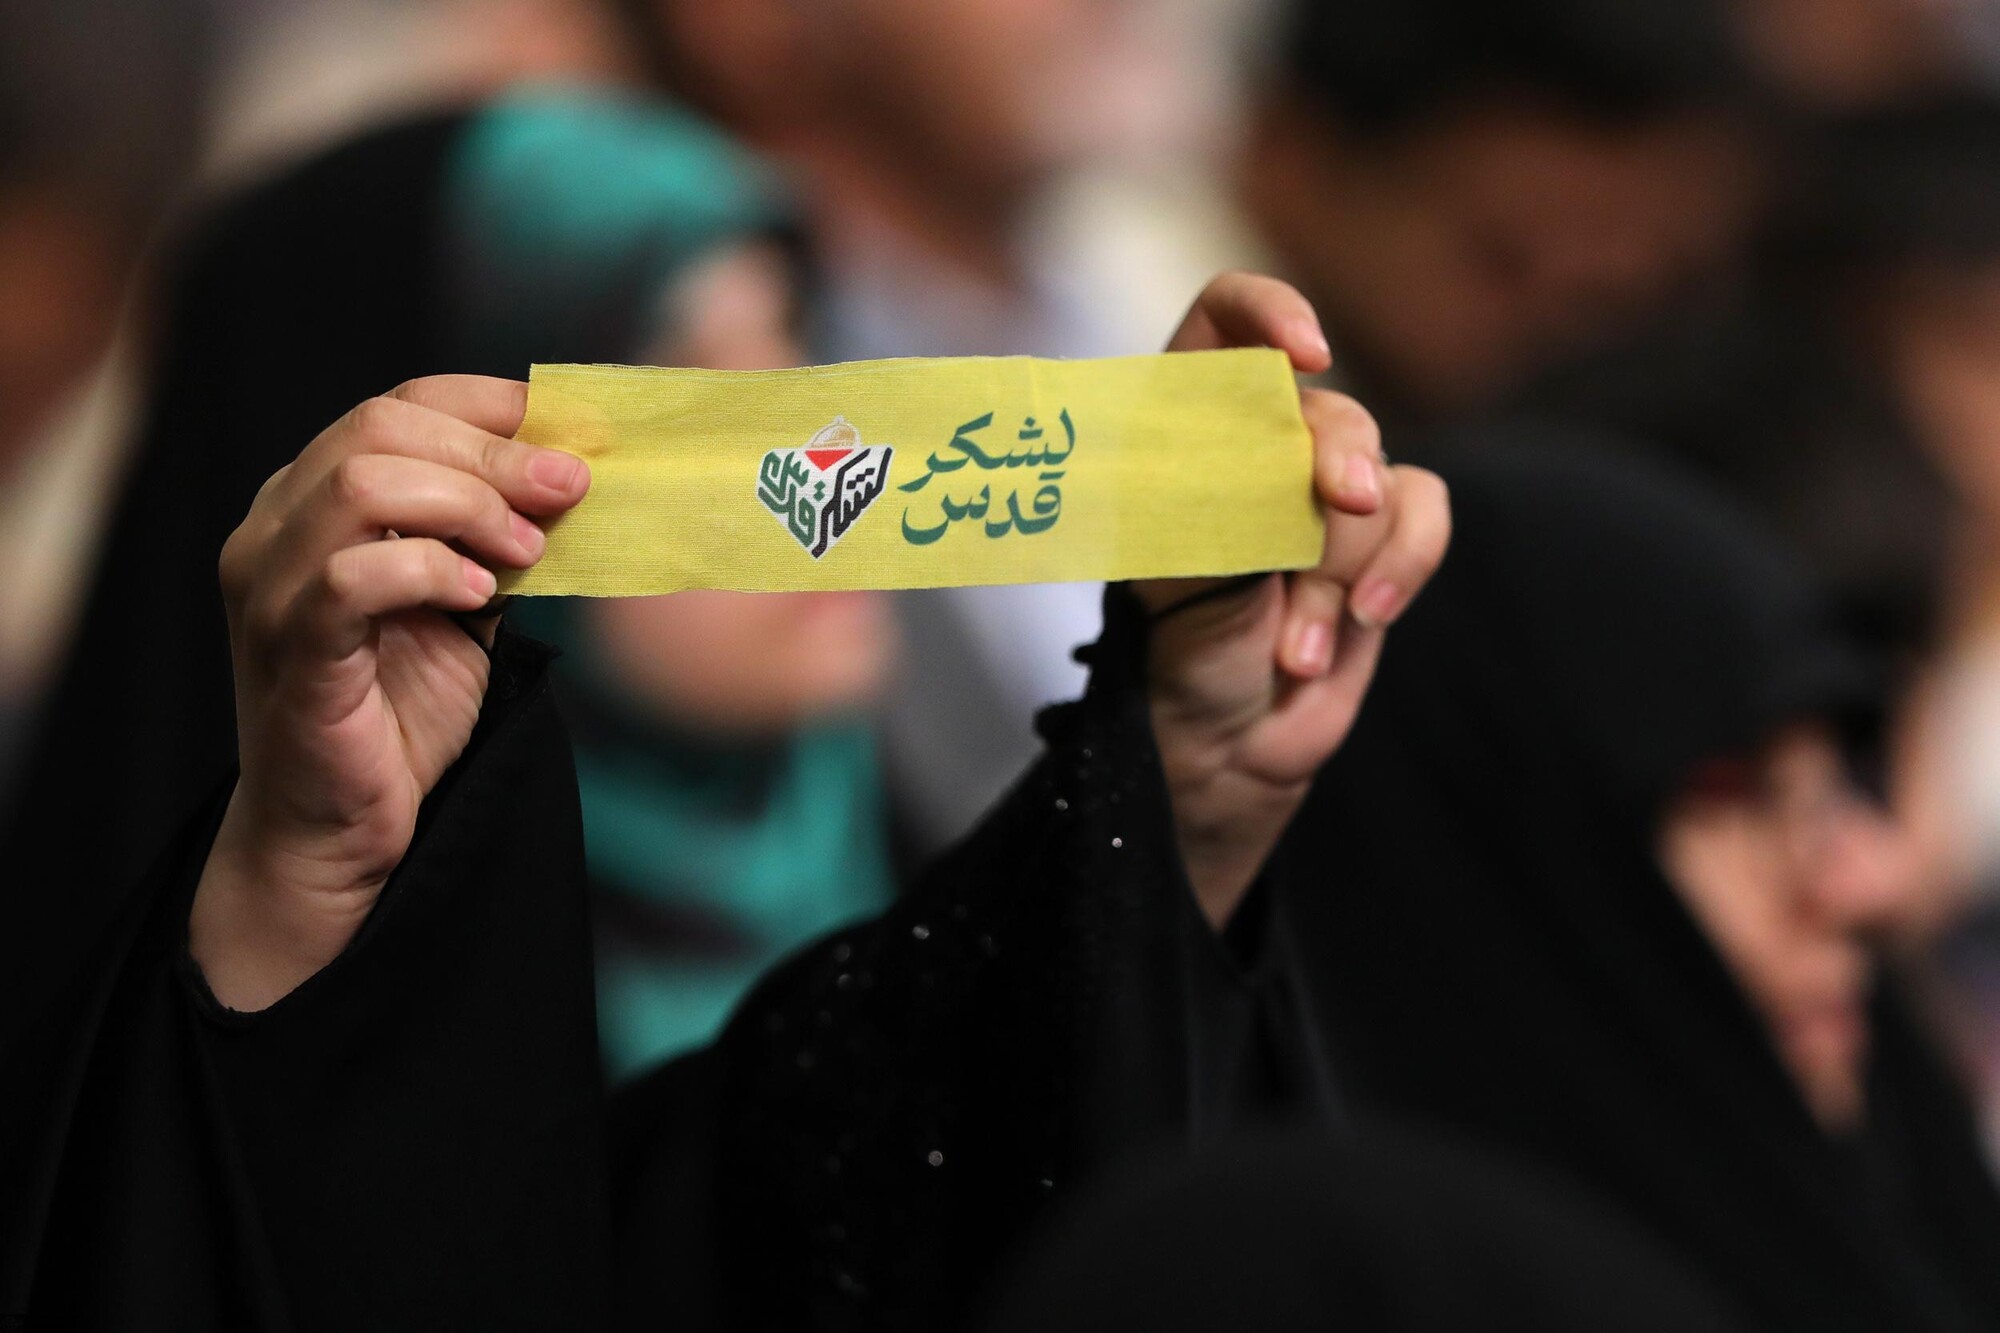 لشکر
قدس
لشکر
قدس